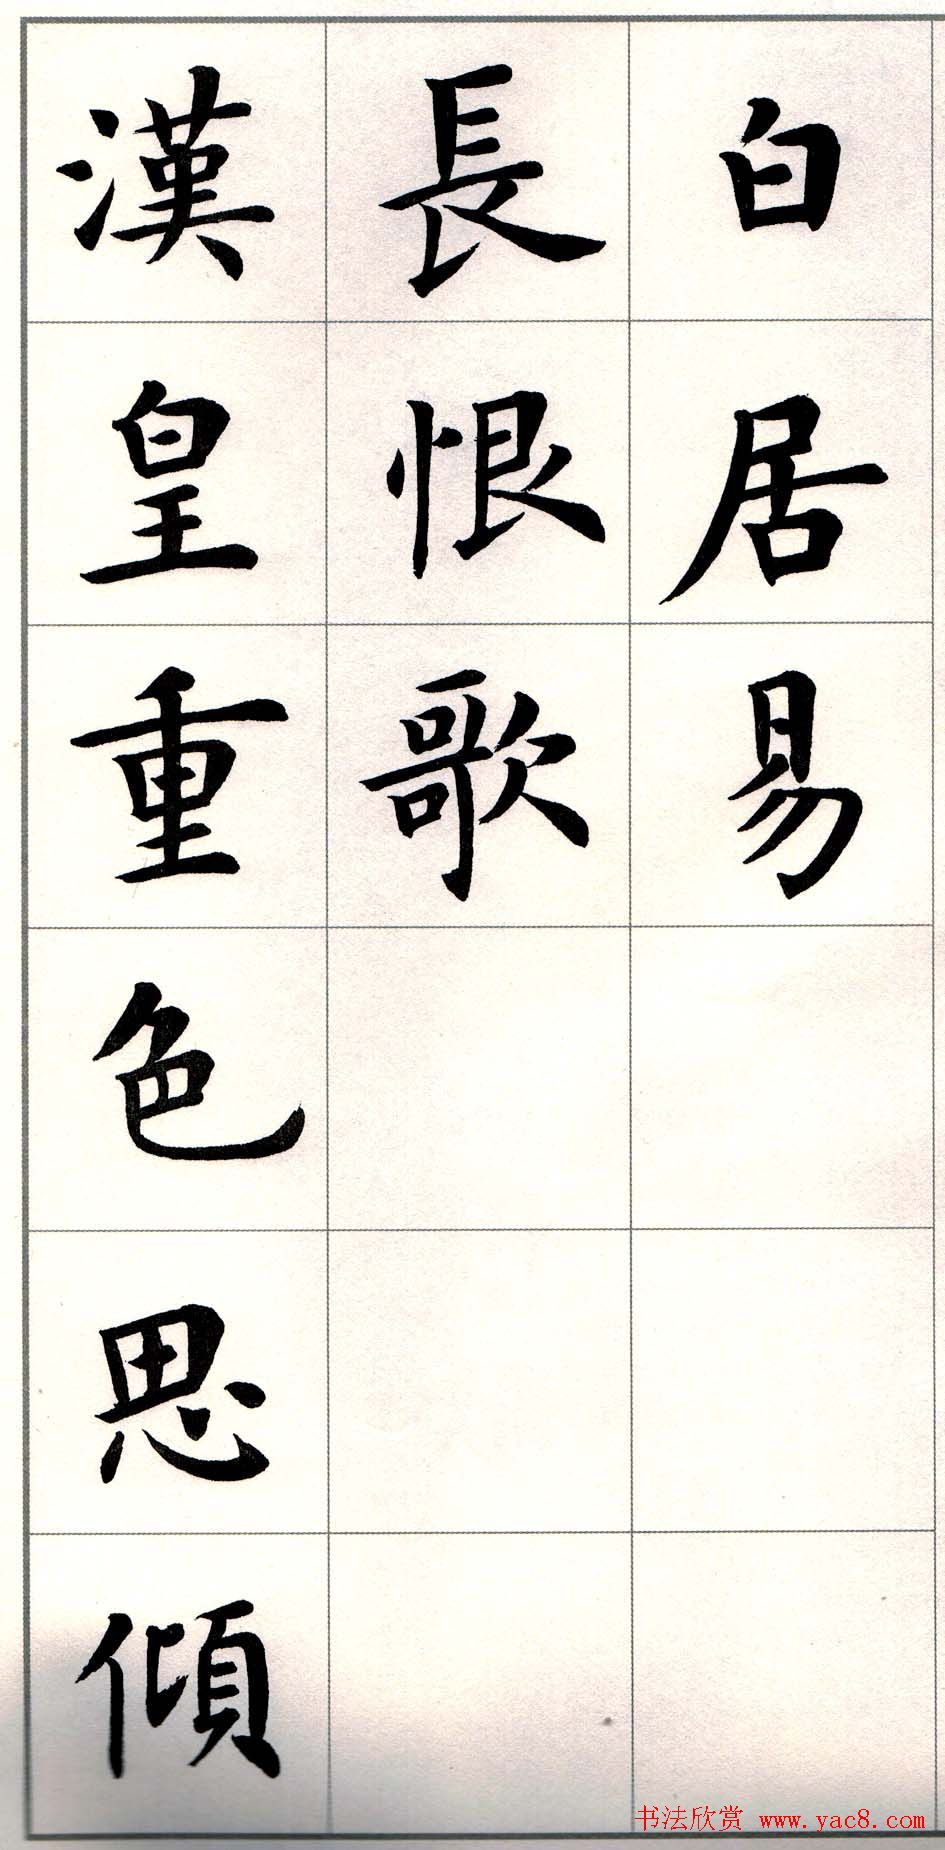 白居易
長恨歌
漢皇重色思傾
书法欣赏 www.yac8.com